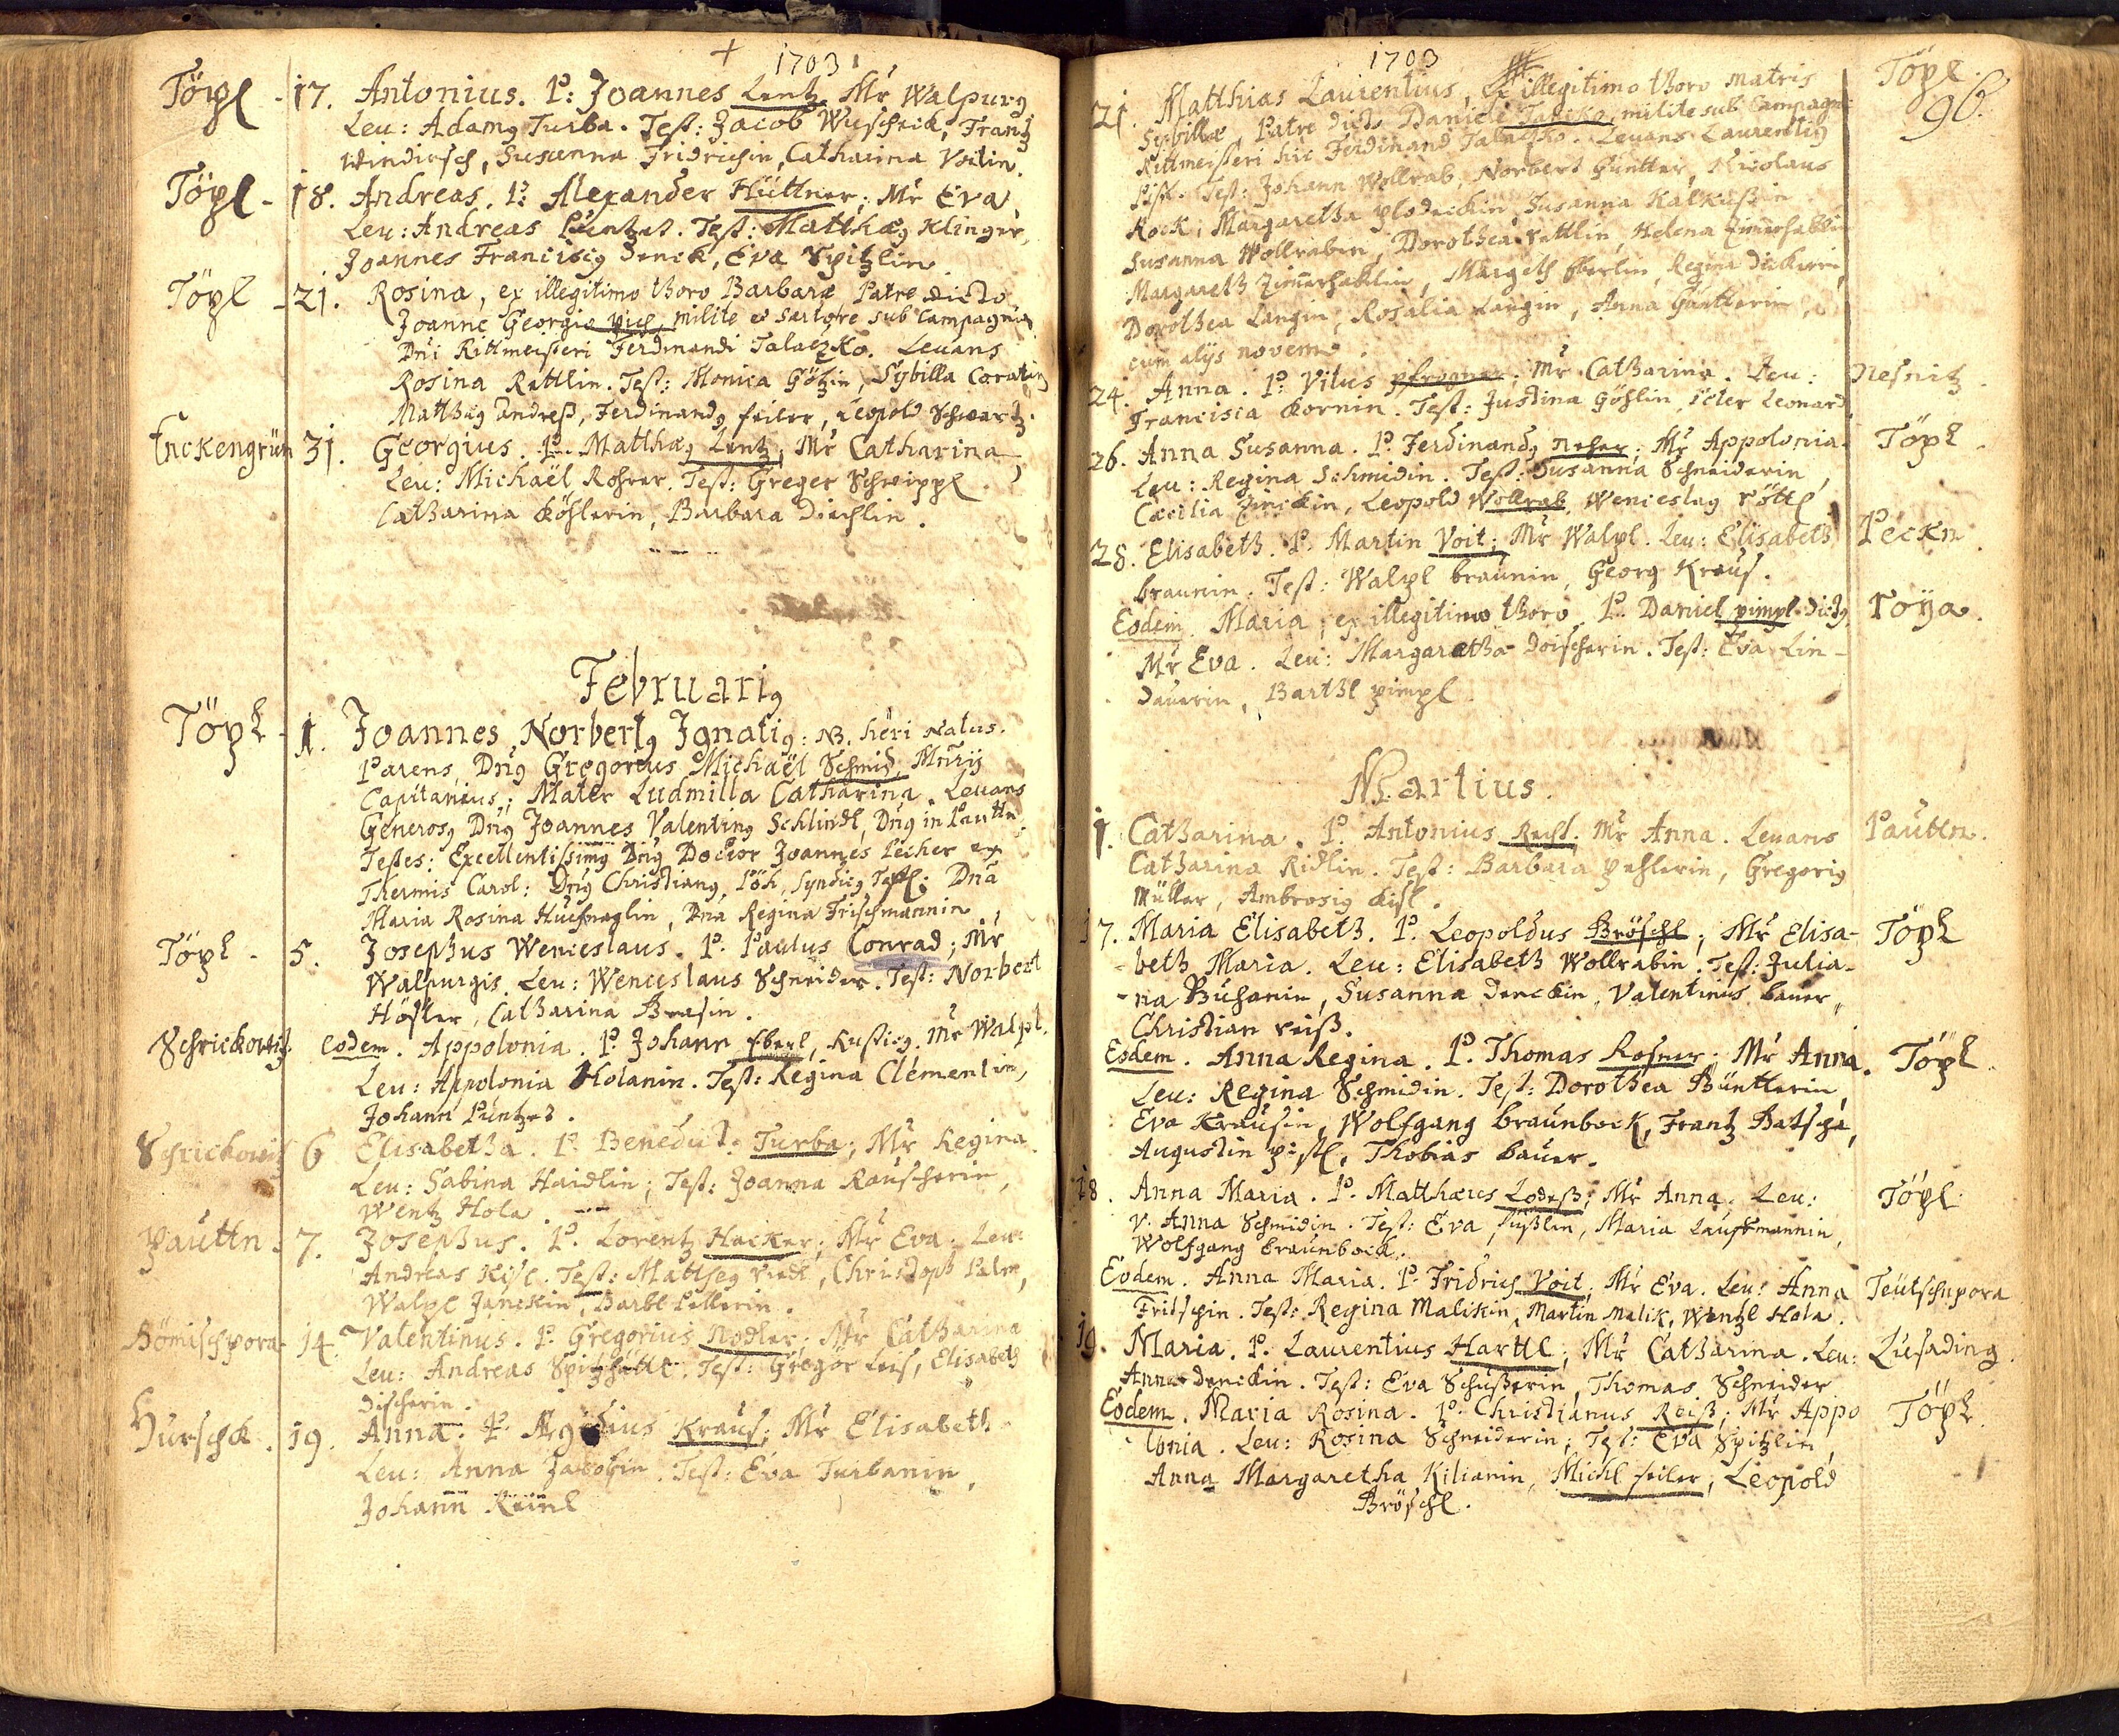 + 1703
Töpl - 17. Antonius. P: Joannes Lentz Mr Walpurg
Leu: Adamg Turba. Test: Jacob Wuscheck, Frantz
Windirsch, Susanna Fridrichin, Catharina Voitin.
Töpl - 18. Andreas. P: Alexander Hüttner; Mr Eva
Leu: Andreas Püntzet. Test: Matthæg Klinger,
Joannes Franciscg Denck, Eva Spitzlin.
Töpl - 21. Rosina, ex illegitimo thoro Barbaræ, Patre dicto
Joanne Georgio milite et sartore sub Campagnia
Dni Rittmeisteri Ferdinandi Talaczko. Leuans
Rosina Rattlin. Test: Monica Götzin, Sybilla
Matthæg Andress, Ferdinandg feiler, Leopold Schwartz.
Enckengrün 31. Georgius. P. Matthæg Lentz, Mr Catharina,
Leu: Michaël Rohrer. Test: Greger Schwippl.
Catharina Köhlerin, Barbara Diechlin.
Februarig
Töpl - 1. Joannes Norbertg Ignatig: NB. heri natus.
Parens, Dng Gregorius Michaël Schmid, Mnrij
Capitaneus; Mater Ludmilla Catharina. Leuans
Generosg Dng Joannes Valenting Schlindl, Dng in Pauttn
Testes: Excellentissimg Dng Doctor Joannes Pecher ex
Thermis Carol: Dng Christiang Pöh, Syndicg Topl: Dna
Maria Rosina Huefnaglin, Dna Regina Frischmannin
Töpl - 5. Josephus Wenceslaus. P. Paulus Conrad; Mr
Walpurgis. Leu: Wenceslaus Schneider. Test: Norbert
Höfler, Catharina Brasin.
Schrickowitz. Eodem. Appolonia. P. Johann Eberl, Rusticg. Mr Walpl.
Leu: Appolonia Holanin. Test: Regina Clementin,
Johann Püntzet.
Schrickowitz 6 Elisabetha. P. Benedict: Turba; Mr Regina
Leu: Sabina Haidlin; Test: Joanna Rauscherin,
Wentz Hola.
Pauttn. 7. Josephus. P. Lorentz Hacker; Mr Eva. Leu:
Andreas Kisl. Test: Matthæg Riedl, Christoph Palm,
Walpl Janckin, Barbl Pellerin.
Bömischpora 14. Valentinus. P. Gregorius Nodler; Mr Catharina
Leu: Andreas Spitzhüttl. Test: Gregor Leis, Elisabeth
Discherin.
Hurschk. 19. Anna. P. Ægidius Kraus; Mr Elisabeth
Leu: Anna Jacobin. Test: Eva Turbanin,
Johann Reinl
1703
96.
21. Matthias Laurentius, ex illegitimo thoro matris Töpl
Sybillæ, Patre dicto Daniele milite sub Campagnia
Rittmeisteri Ferdinand Talaczko. Leuans Laurentig
Pistl. Test: Johann Wollrab, Norbert Güntter, Nicolaus
Rock; Margaretha Plodeckin, Susanna Kalkusin
Susanna Wollrabin, Dorothea Rattlin, Helena Zimerhaklin
Margareth Zimerhaklin, Margeth Eberlin, Regina Dickin,
Dorothea Langin, Rosalia Langin, Anna Güntterin,
cum alijs novem.
24. Anna. P. Vitus Pfrogner; Mr Catharina. Leu: Nesnitz.
Francisca Kornin. Test: Justina Göhlin, Peter Leonard.
26. Anna Susanna. P. Ferdinandg Neher; Mr Appolonia. Töpl.
Leu: Regina Schmidin. Test: Susanna Schneiderin,
Cæcilia Zinckin, Leopold Wollrab, Wenceslag Röttl.
28. Elisabeth. P. Martin Voit; Mr Walpl. Leu: Elisabeth Peckn.
Braunin. Test: Walpl Braunin, Georg Kraus.
Eodem. Maria, ex illegitimo thoro. P. Daniel Pimpl dictg Roÿa.
Mr Eva. Leu: Margaretha Doischerin. Test: Eva Lin-
dauerin, Barthl Pimpl.
Martius.
1. Catharina. P. Antonius Rechl. Mr Anna. Leuans Pauttn.
Catharina Ridlin. Test: Barbara Pehlerin, Gregorig
Müller, Ambrosig Kisl.
17. Maria Elisabeth. P. Leopoldus Bröschl; Mr Elisa- Töpl
beth Maria. Leu: Elisabeth Wollrabin. Test: Julia-
-na Buhanin, Susanna Denckin, Valentinus Bauer,
Christian Reiss.
Eodem. Anna Regina. P. Thomas Rosner; Mr Anna. Töpl.
Leu: Regina Schmidin. Test: Dorothea Büntterin,
Eva Krausin, Wolfgang Braunbock, Frantz Batscha,
Augustin Pistl, Thobias Bauer.
18. Anna Maria. P. Matthæus Lodess; Mr Anna. Leu: Töpl.
V. Anna Schmidin. Test: Eva Füsslin, Maria Lauffmannin,
Wolfgang Braunbock.
Eodem. Anna Maria. P. Fridrich Voit; Mr Eva. Leu: Anna Teutschpora
Fritschin. Test: Regina Malikin, Martin Malik, Wentzl Hola.
19. Maria. P. Laurentius Harttl; Mr Catharina. Leu: Lusading.
Anna Denckin. Test: Eva Schusterin, Thomas Schneider
Eodem. Maria Rosina. P. Christianus Reiss; Mr Appo Töpl.
lonia. Leu: Rosina Schneiderin; Test: Eva Spitzlin,
Anna Margaretha Kilianin, Michl feiler, Leopold
Bröschl.